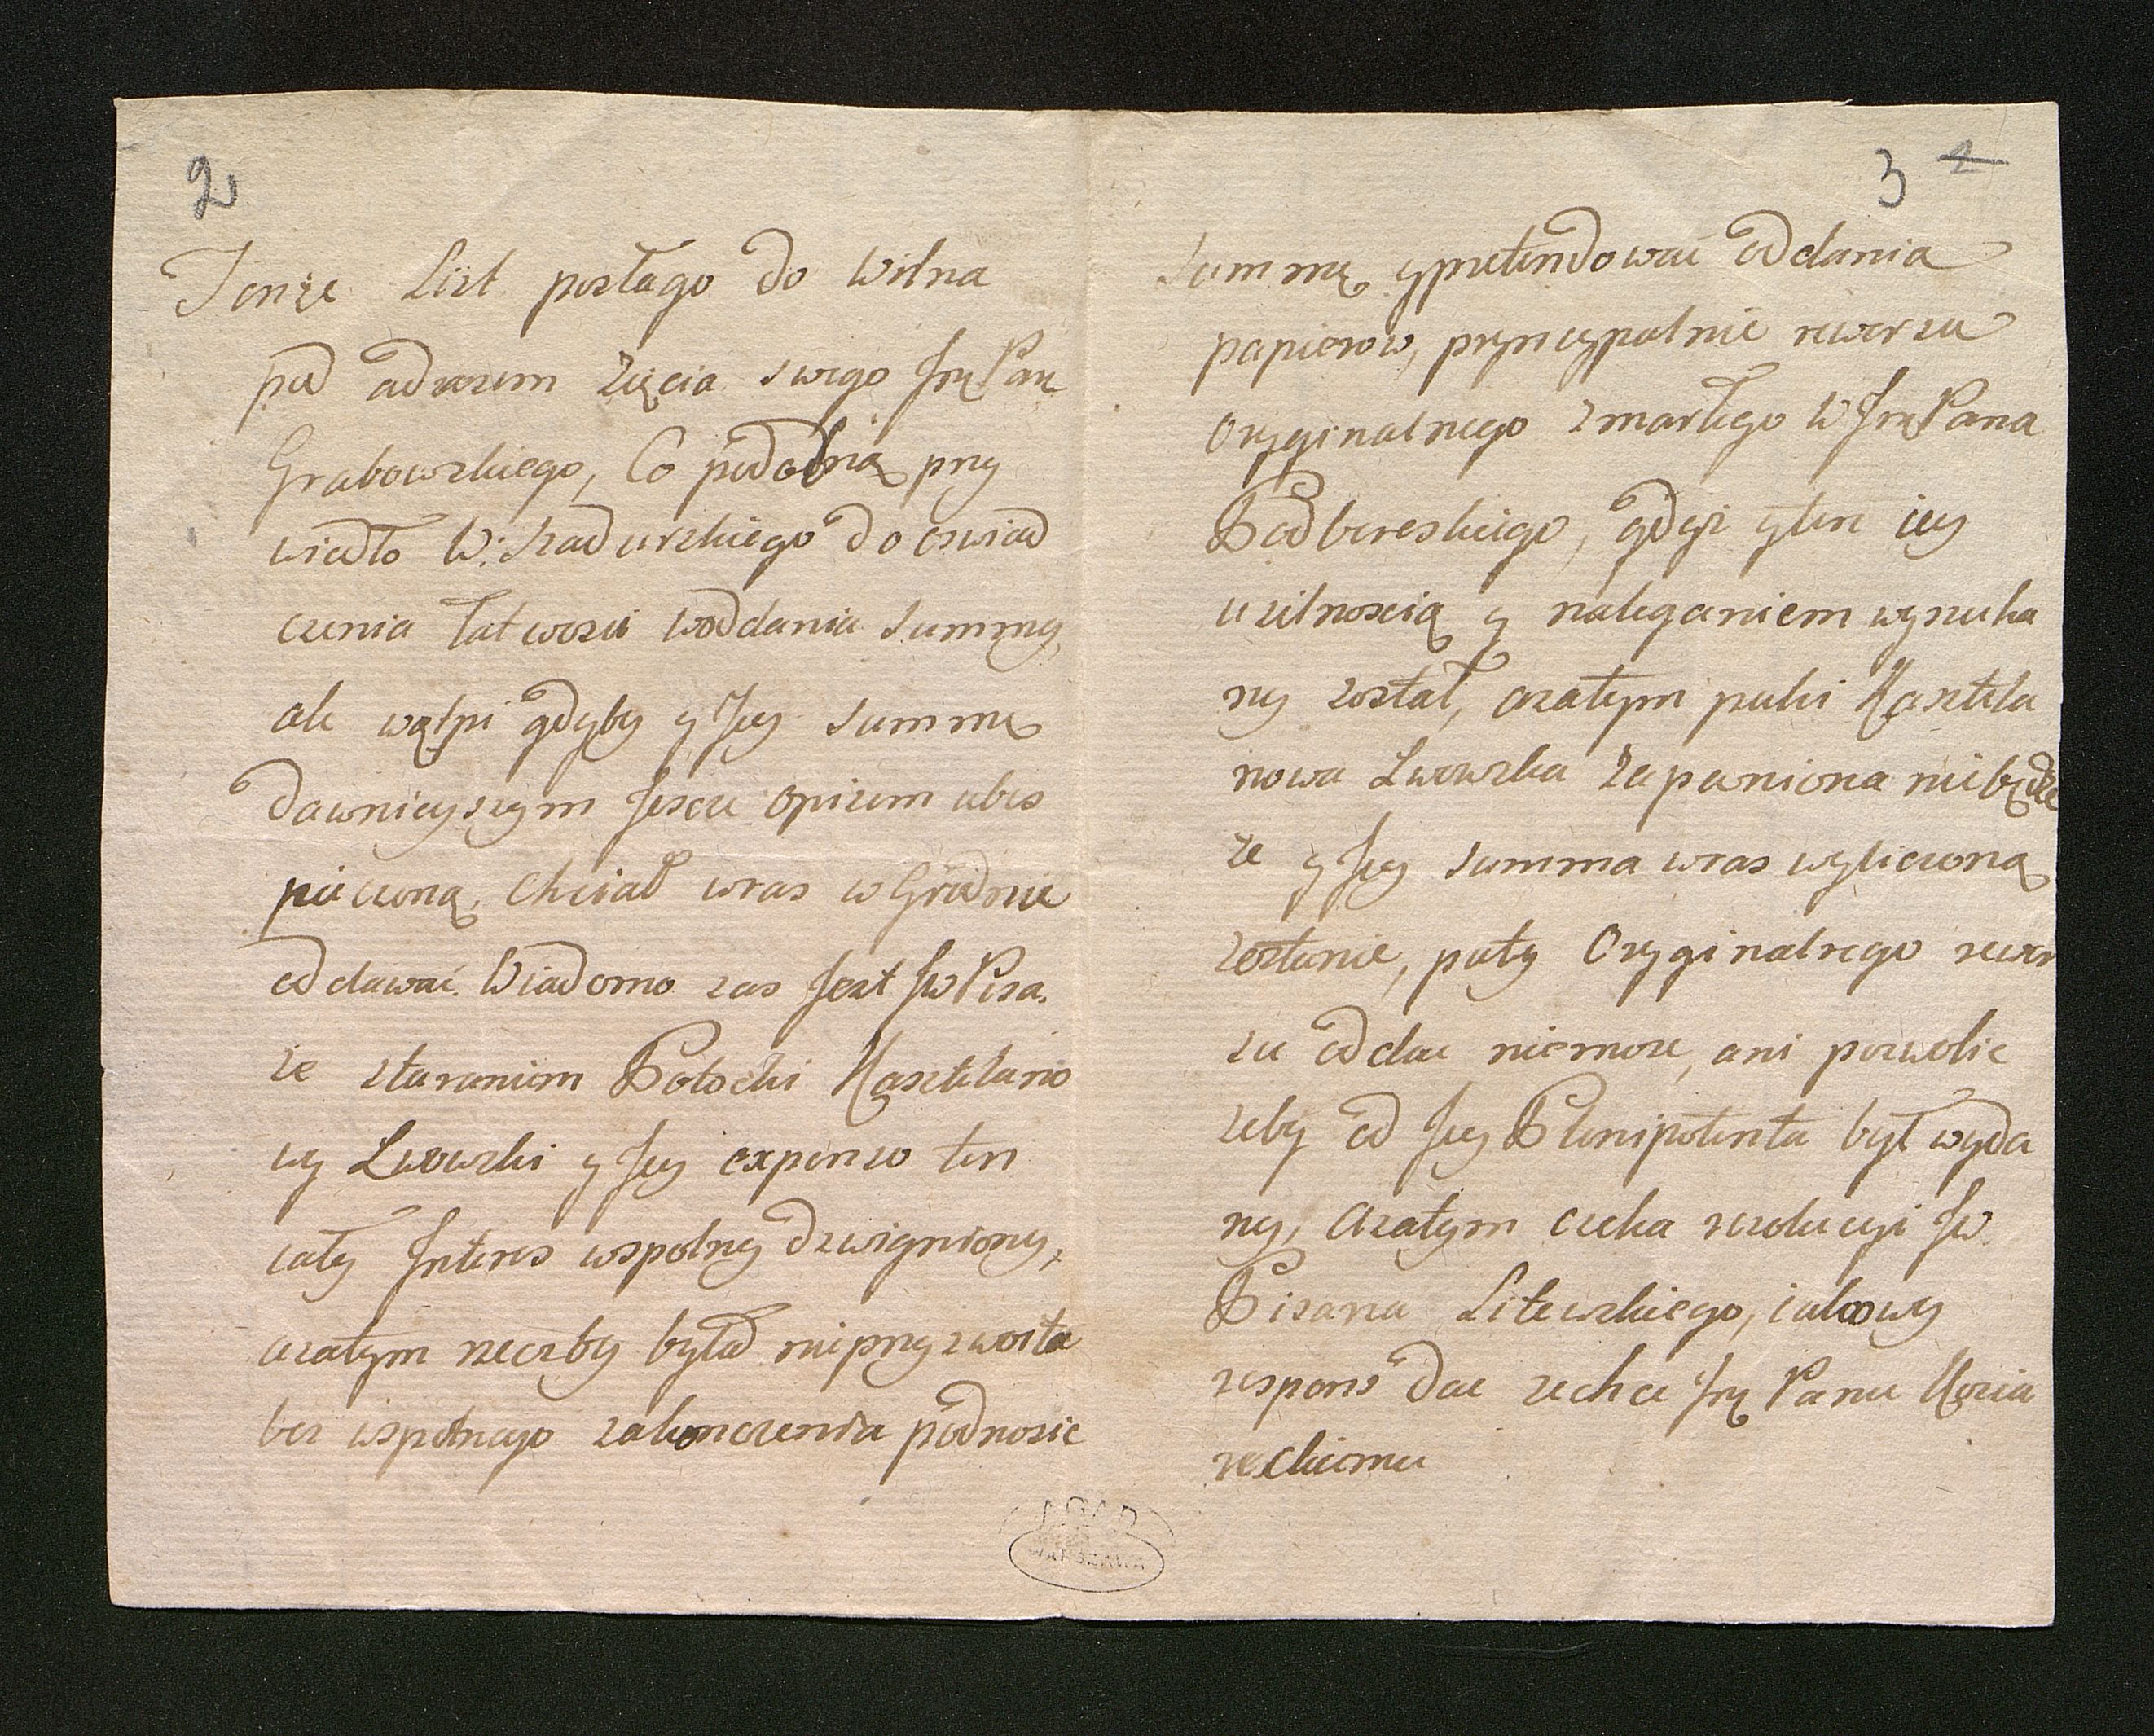 2
Tenże List posłago do Wilna
pod adresem Zięcia swego Jmę Pan
Grabowskiego, Co podobną przy
wiodło W: Szadurskiego do oswiad
czenia łatwosci woddania Summy
ale wątpi gdyby y Jey Summę
dawnieyszym Jescze opisem ubes
pieczoną, chciał wras w Grodnie
oddawać. Wiadomo zas Jest Jw Pisa.
że staraniem Potocki Kasztelano
wy Lwowski y Jey expenso ten
cały Jnteres wspolny dzwigniony,
azatym rzeczby była nieprzyzwoita
bez wspolnego zakonczenia podnosic
3 2
Summę y pretendować oddania
papierow, pryncypalnie rewersu
Oryginalnego zmarłego W Jmę Pana
Podbereskiego, gdyż y ten iey
usilnoscią y naleganiem wyszuka
ny został, azatym puki Kasztela
nowa Lwowska Zapewniona niebędzie
że y Jey Summa wras wyliczoną
zostanie, puty Oryginalnego rewer
su oddac niemoze, ani pozwolic
zeby od Jey Plenipotenta był wyda
ny, Azatym czeka rezolucyi Jw.
Pisarza Litewskiego, iakowy
respons dac zechce Jmę Panu Kozia
reckiemu
AGAD
WARSZAWA